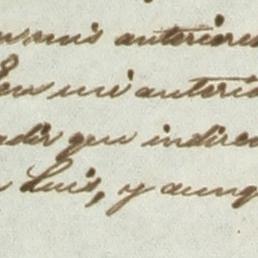 en mis anteriores
En mi anterio
adir que indirec
n Luis, y aunq